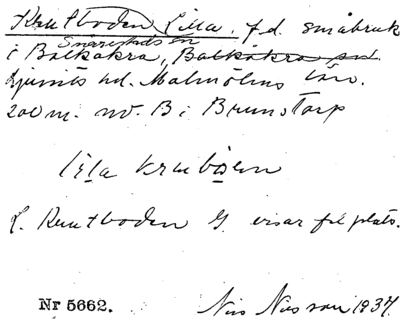 Krutboden Lilla, f.d. småbruk
Snarestads sn
i Balkåkra, Balkåkra sn
Ljunits hd. Malmöhus län.
200 m. nv. B i Brunstorp
lilla krubóen
L. Krutboden G. visar på plats.
Nr 5662.
Nils Nilsson 1937.